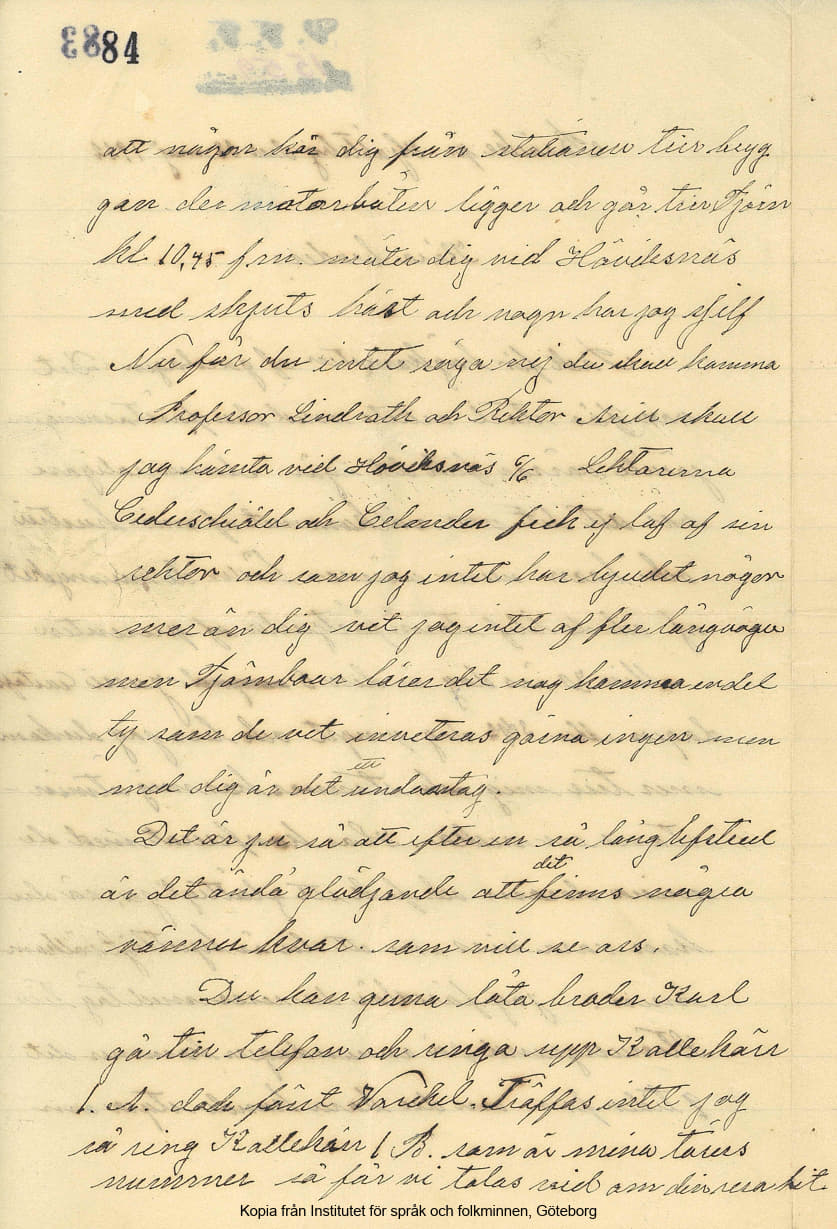 84
att någon kör dig från stationen till bryg
gan der motorbåten ligger och går till Tjörn
kl 10,45 fm. möter dig vid Höviksnäs
med skjuts häst och vagn har jag sjelf
Nu får du intet säga nej du skall komma
Professor Lindroth och Rektor skall
jag hämta vid Höviksnäs 6/6 Lektorerna
Cederschiöld och Celander fick ej lof af sin
rektor och som jag intet har bjudet någon
mer än dig vet jag intet af fler långväga
men Tjörnboar lärer det nog komma en del
ty som du vet inviteras gärna ingen men
med dig är det ett undantag.
Det är ju så att efter en så lång lifstid
är det ändå glädjande att det finns några
vänner kvar. som vill se oss.
Du kan gerna låta broder Karl
gå till telefon och ringa upp Kållekärr
1. A. dock först Träffas intet jag
så ring Kållekärr 1 B. som är mina
nummer så får vi talas vid om din resa hit.
Kopia från Institutet för språk och folkminnen, Göteborg